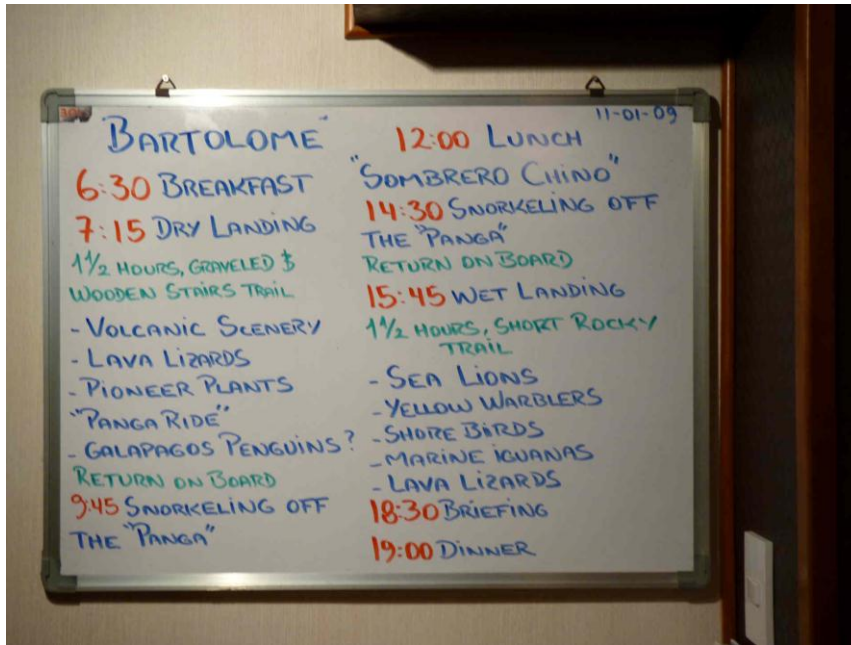 "BARTOLOME"
6:30 BREAKFAST
7:15 DRY LANDING
1 1/2 HOURS, GRAVELED $
WOODEN STAIRS TRAIL
- VOLCANIC SCENERY
- LAVA LIZARDS
- PIONEER PLANTS
"PANGA RIDE"
- GALAPAGOS PENGUINS?
RETURN ON BOARD
9:45 SNORKELING OFF
THE "PANGA"
11-01-09
12:00 LUNCH
"SOMBRERO CHINO"
14:30 SNORKELING OFF
THE "PANGA"
RETURN ON BOARD
15:45 WET LANDING
1 1/2 HOURS, SHORT ROCKY
TRAIL
- SEA LIONS
- YELLOW WARBLERS
- SHORE BIRDS
- MARINE IGUANAS
- LAVA LIZARDS
18:30 BRIEFING
19:00 DINNER